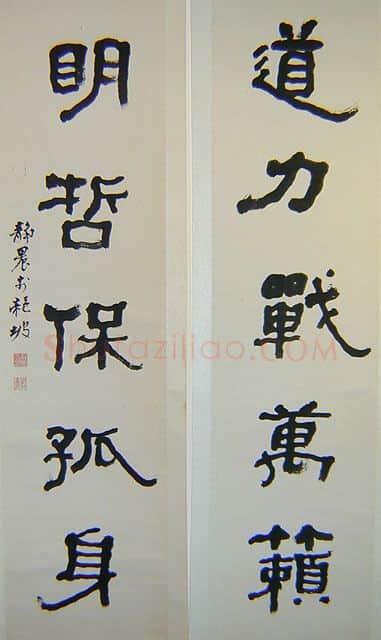 道力戰萬籟
明哲保孤身
靜農於龍坡
Shufaziliao.COM